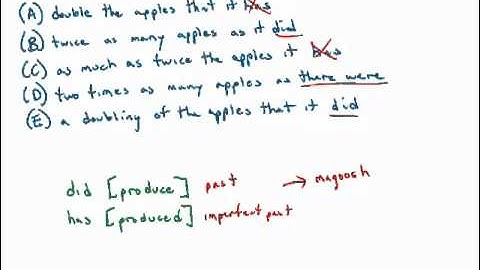 (A) double the apples that it has
(B) twice as many apples as it did
(C) as much as twice the apples it has
(D) two times as many apples as there were
(E) a doubling of the apples that it did
did [produce] past → magoosh
has [produced] imperfect past